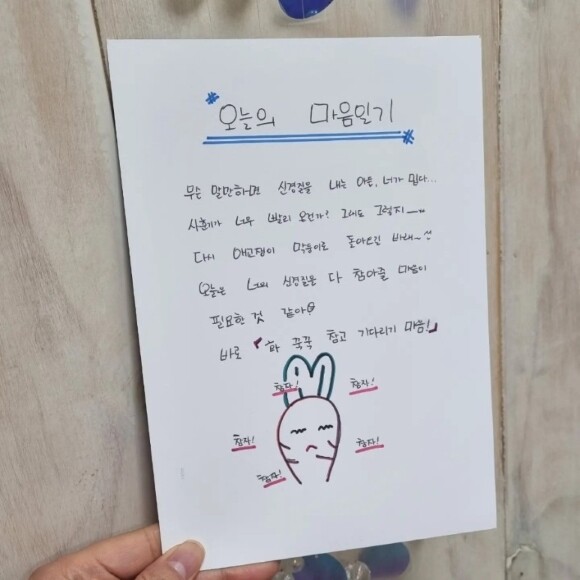 오늘의 마음일기
무슨 말만하면 신경질을 내는 아들, 너가 밉다...
사춘기가 너무 빨리 온건가? 그래도 그렇지~..
다시 애교쟁이 막둥이로 돌아오길 바래~^^
오늘은 너의 신경질을 다 참아줄 마음이
필요한 것 같아
바로 「화 꾹꾹 참고 기다리기 마음!」
참자! 참자!
참자! 참자!
참자!